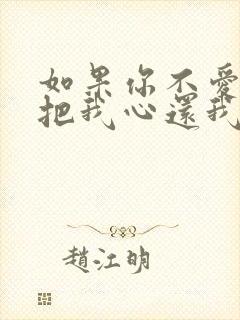 如果你不愛
把我心還我
趙江明